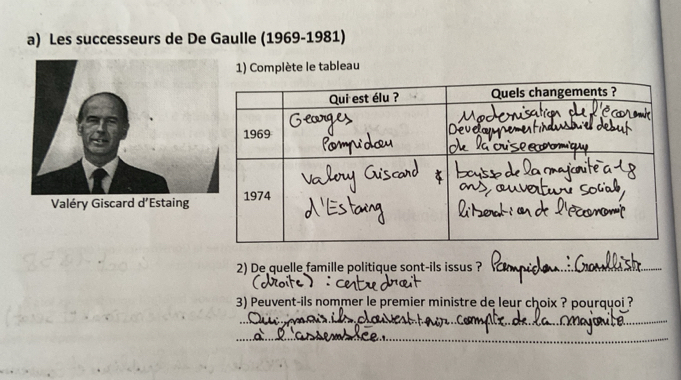 a) Les successeurs de De Gaulle (1969-1981)
1) Complète le tableau
Qui est élu ?
Quels changements ?
1969
Georges
Pompidou
Modernisation de l'économie
Developpement industriel debut
de la crise economique
1974
Valery Giscard
d'Estaing
baisse de la majorité a 18
ans, ouverture sociale,
liberation de l'économie
Valéry Giscard d'Estaing
2) De quelle famille politique sont-ils issus ? Pompidou : Gaulliste
(droite) : centre droit
3) Peuvent-ils nommer le premier ministre de leur choix ? pourquoi ?
Oui, mais ils doivent tenir compte de la majorité
à l'assemblée.